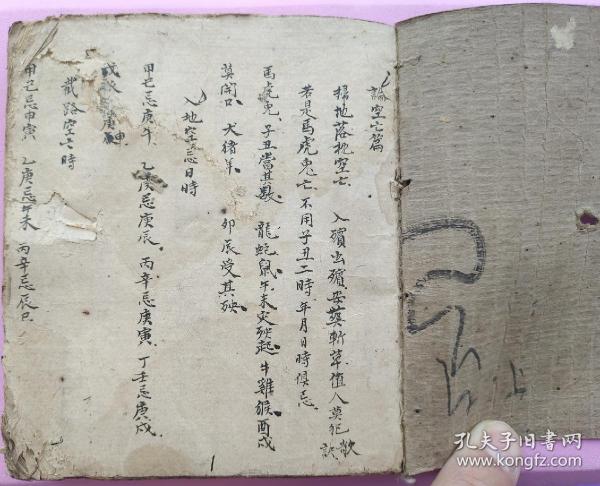 論空亡篇
掃地落枕空亡 入殯出殯安葬斬草值人莫犯
歌訣
若是馬虎兔亡 不用子丑二時年月日時俱忌
馬虎兔 子丑當其數 龍蛇鼠 午未灾殃起 牛雞猴 酉戌
莫開口 犬猪羊 卯辰受其殃
入地空忌日時
甲己忌庚午 乙庚忌庚辰 丙辛忌庚寅 丁壬忌庚戌
戊癸 庚申
截路空亡時
甲己忌申寅 乙庚忌午未 丙辛忌辰巳
1
上
孔夫子旧書网
www.kongfz.com